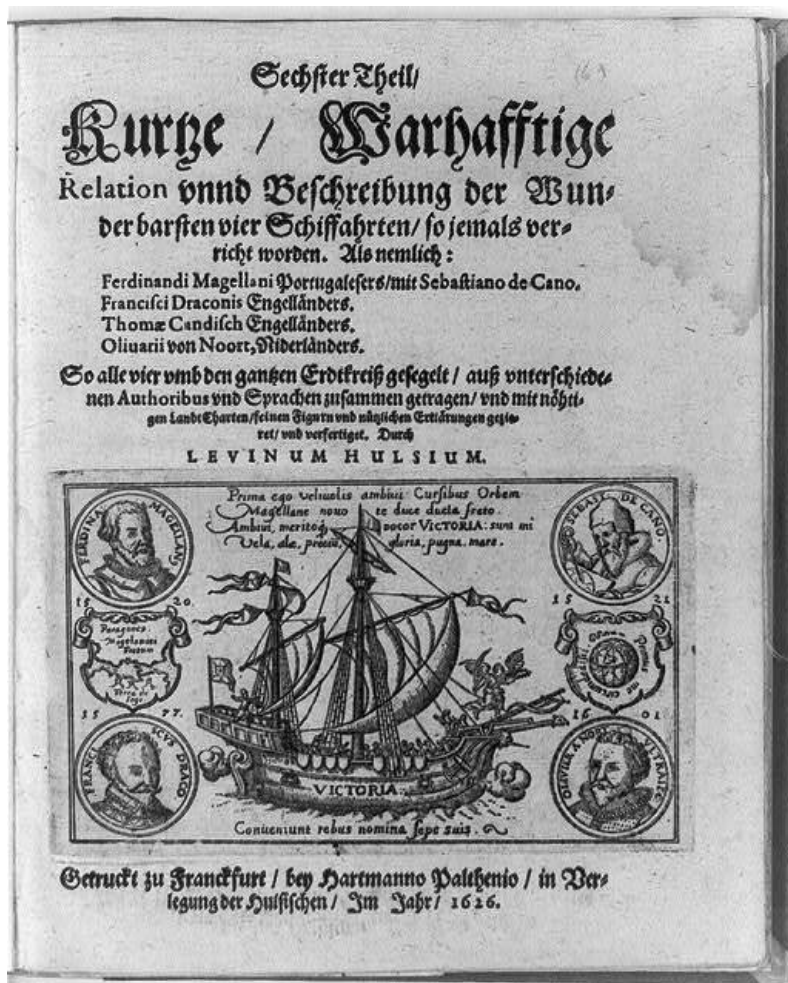 Sechster Theil/
Kurtze / Warhafftige
Relation vnnd Beschreibung der Wun⸗
der barsten vier Schiffahrten/ so jemals ver⸗
richt worden. Als nemlich:
Ferdinandi Magellani Portugalesers/mit Sebastiano de Cano.
Francisci Draconis Engelländers.
Thomæ Candisch Engelländers.
Oliuarii von Noort, Niderländers.
So alle vier vmb den gantzen Erdtkreiß gesegelt / auß vnterschiede⸗
nen Authoribus vnd Sprachen zusammen getragen/ vnd mit nöhti⸗
gen Landt Charten/feinen Figurn vnd nützlichen Erklärungen gezie⸗
ret/ vnd verfertiget. Durch
LEVINUM HULSIUM.
Prima ego veliuolis ambiui Cursibus Orbem
Magellane nouo te duce ducta freto.
Ambiui, meritoq̃ vocor VICTORIA: sunt mi
Vela, alæ, preciũ, gloria, pugna, mare.
FERDINA MAGELLAN
SEBAST. DE CANO.
15 20.
15 21
Magellanicu
Fretum
Terra de
15 77.
16 01
FRANCISCVS DRACO
OLIVIER A NO VLTRAIECT
VICTORIA.
Conueniunt rebus nomina sepe suis.
Getruckt zu Franckfurt / bey Hartmanno Palthenio / in Ver⸗
legung der Hulsischen / Im Jahr / 1626.